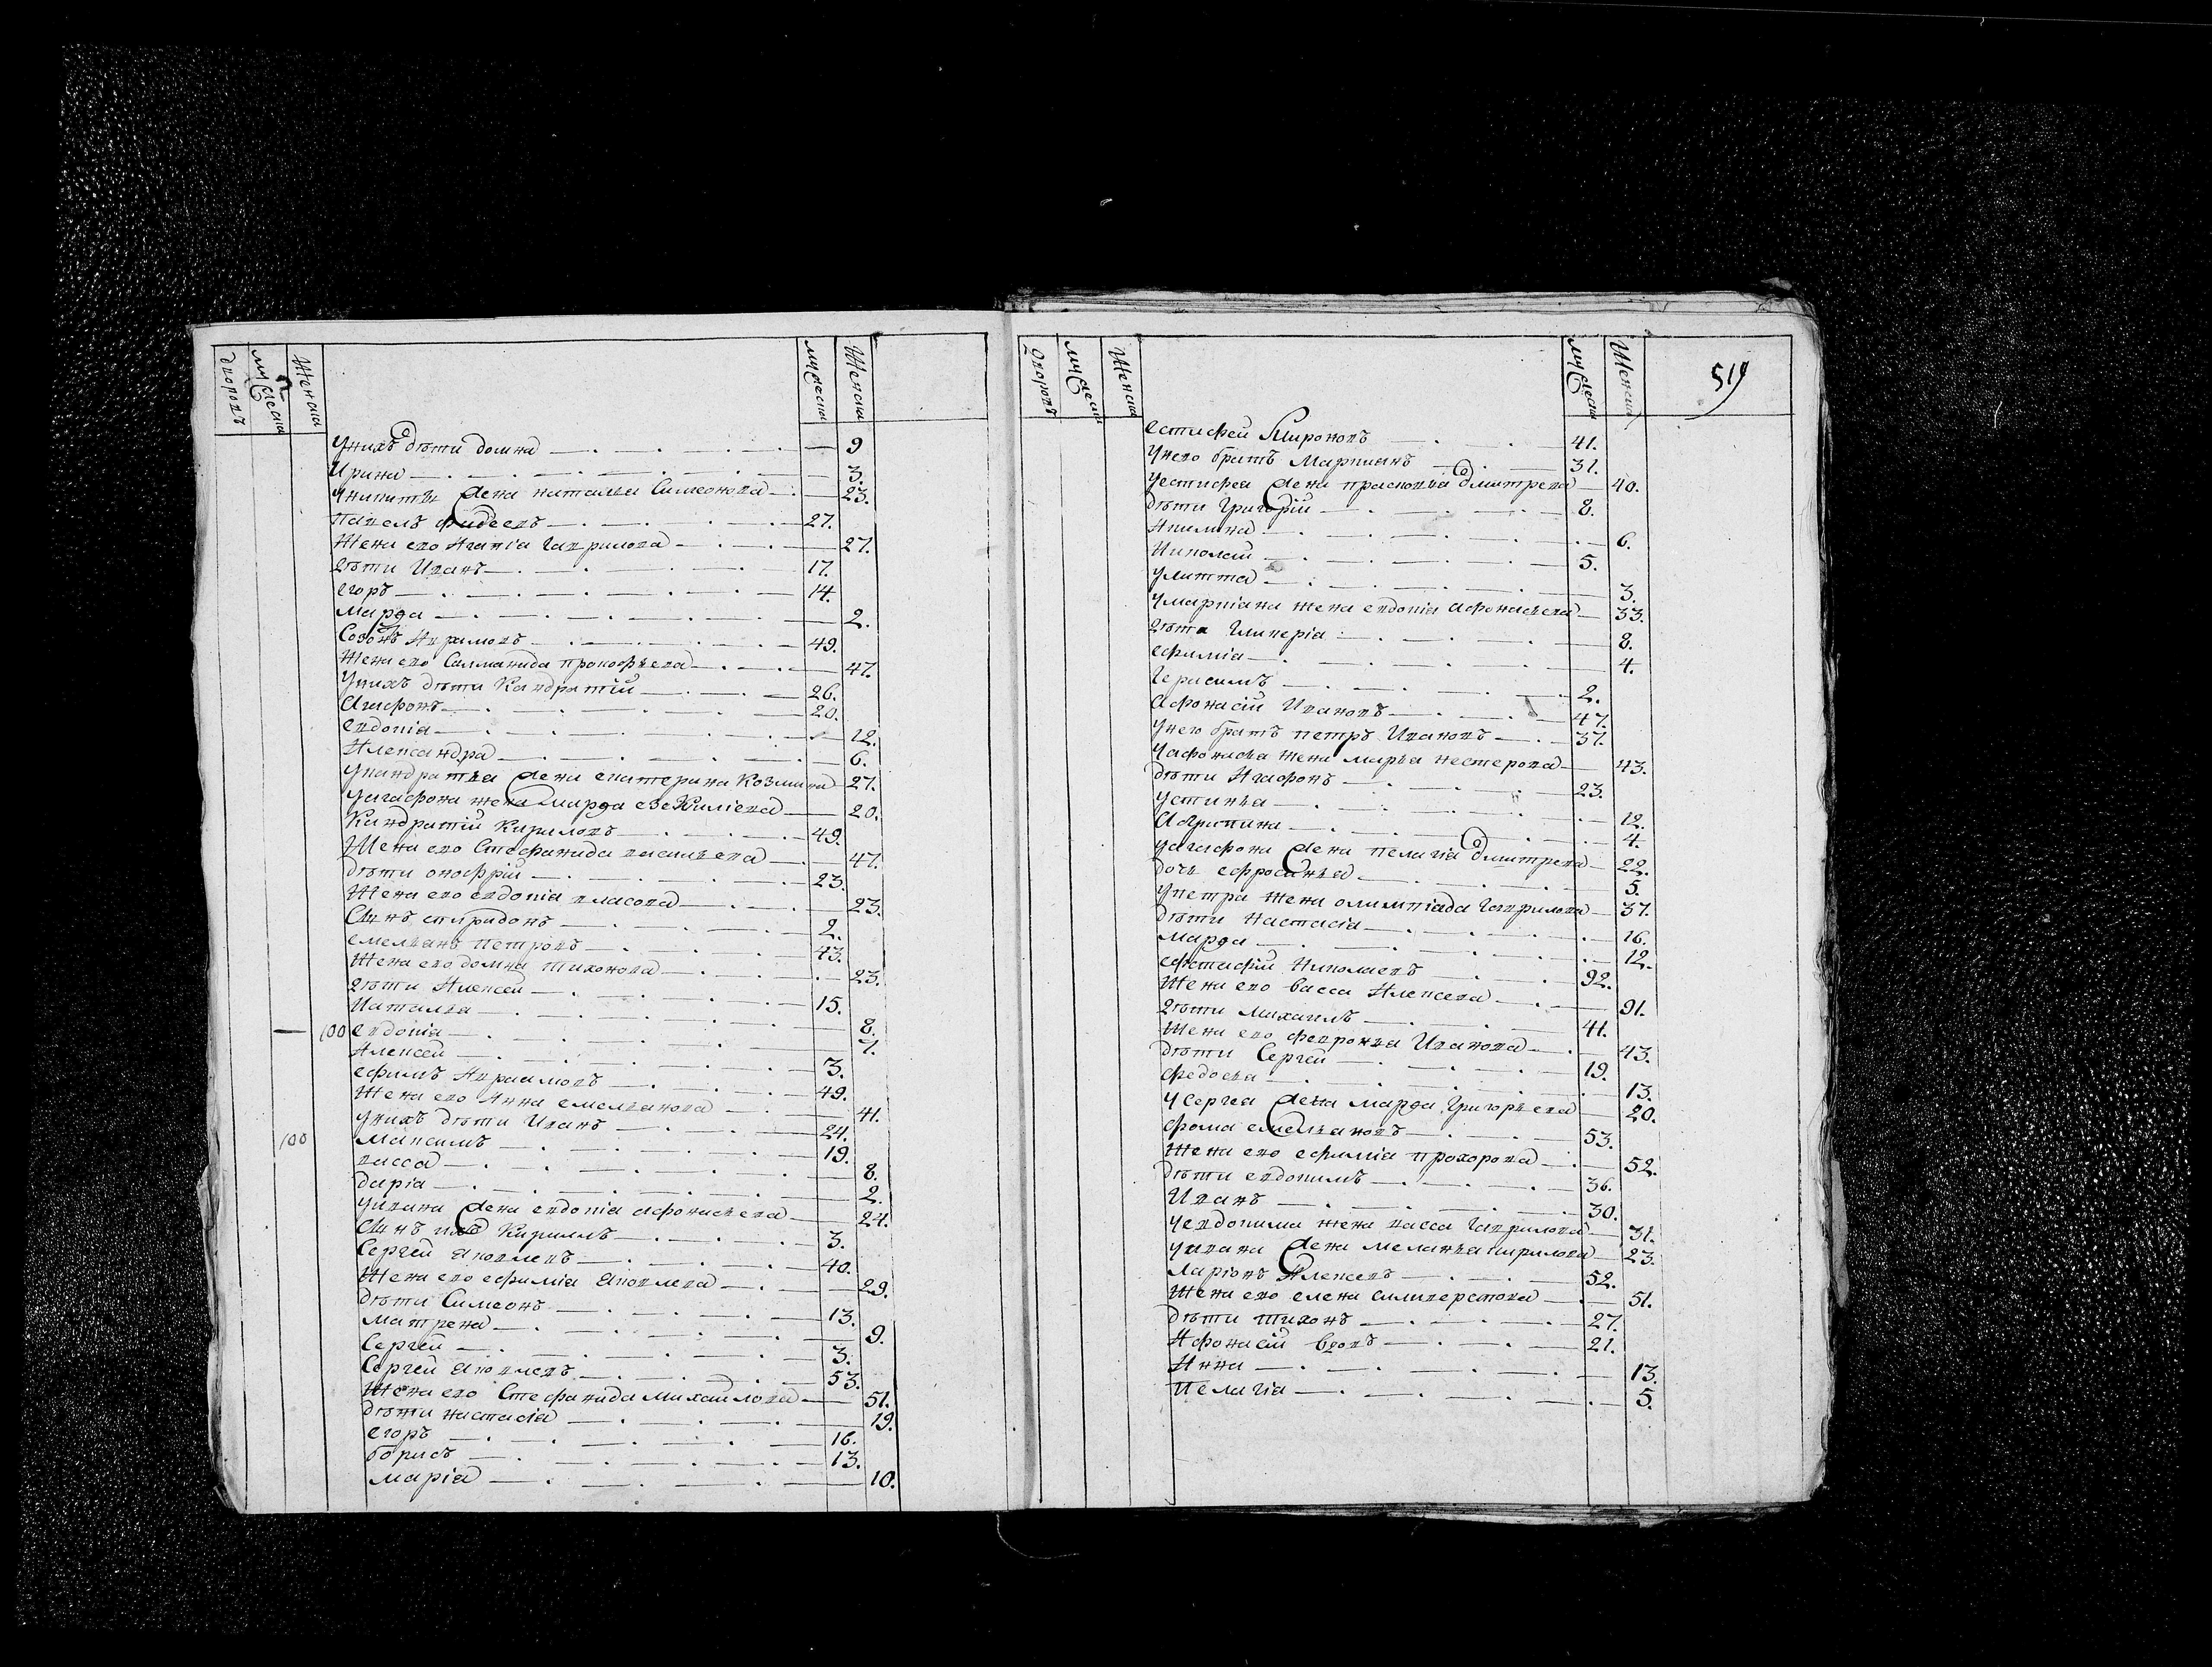 дворовъ мужеска женска мужеска женска
унихъ дѣти домна 9
Ирина 3.
уникиты жена наталья Симеонова 23.
Павелъ фадеевъ 27.
Жена ево Агапіа Гаврилова 27.
дѣти Иванъ 17.
егоръ 14.
марфа 2.
Созонъ Аврамовъ 49.
Жена ево Саламанида прокофьева 47.
Унихъ дѣти Кандратiй 26.
Агафонъ 20.
евдокіа 12.
Александра 6.
укандратья жена екатерина Козмина 27.
уагафона жена марфа езекиліева 20.
Кандратій Кириловъ 49.
Жена ево Стефанида васильева 47.
дѣти онофрій 23.
Жена ево евдокіа власова 23.
Сынъ спиридонъ 2.
емельянъ Петровъ 43.
Жена ево домна тихонова 23.
дѣти Алексей 15.
Наталья 8.
100 евдокіа 7.
Алексей 3.
ефимъ Авраамовъ 49.
Жена ево Анна емельянова 41.
унихъ дѣти Иванъ 24.
100 Максимъ 19.
васса 8.
даріа 2.
уивана жена евдокіа афонасьева 24.
Сынъ Кирилъ 3.
Сергей яковлевъ 40.
Жена ево ефиміа яковлева 29.
дѣти Симеонъ 13.
матрена 9.
Сергей 3.
Сергей яковлевъ 53.
Жена ево Стефанида михаилова 51.
дѣти настасіа 19.
егоръ 16.
борисъ 13.
маріа 10.
дворовъ мужеска женска мужеска женска 519
естифей Мироновъ 41.
унево братъ Маркианъ 31.
уестифеа жена прасковьа дмитрева 40.
дѣти Григорій 8.
Акилина 6.
Николай 5.
улитта 3.
умаркіана жена евдокіа афонасьева 33.
дѣти Гликеріа 8.
ефиміа 4.
Герасимъ 2.
Афонасій Ивановъ 47.
унего братъ петръ Ивановъ 37.
уафонасьа жена марьа нестерова 43.
дѣти Агафонъ 23.
устинья 12.
Агрипина 4.
уагафона жена пелагіа дмитрева 22.
дочь ефросинья 5.
упетра жена олимпіада Гаврилова 37.
дѣти Настасіа 16.
марфа 12.
ефстафій Николаевъ 92.
Жена ево васса Алексева 91.
дѣти михаилъ 41.
Жена ево февронья Иванова 43.
дѣти Сергей 19.
федосья 13.
усергеа жена марфа григорьева 20.
фома емельановъ 53.
Жена ево ефиміа прохорова 52.
дѣти евдокимъ 36.
Иванъ 30.
уевдокима жена васса Гаврилова 31.
уивана жена меланья кирилова 23.
Ларіонъ Алексевъ 52.
Жена ево елена силиверстова 51.
дѣти тихонъ 27.
Афонасій 21.
Анна 13.
Пелагіа 5.